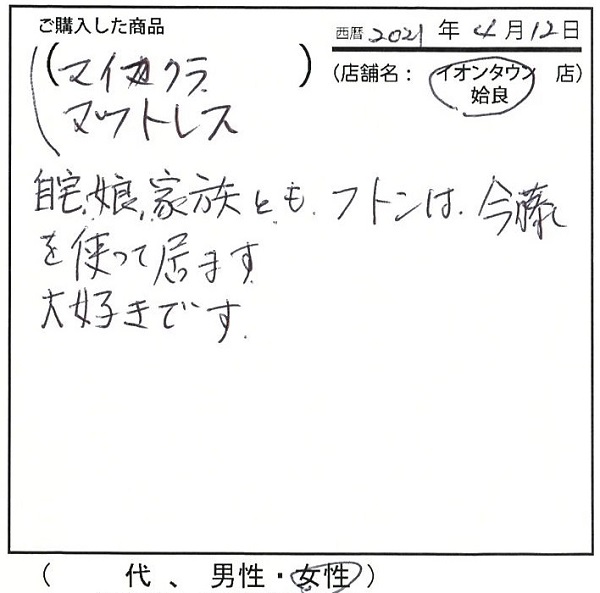 ご購入した商品
西暦 2021 年 4 月 12 日
(マイカクラ)
マットレス
(店舗名： イオンタウン姶良 店)
自宅、娘、家族とも、フトンは、今藤
を使って居ます
大好きです。
( 代、男性・女性)